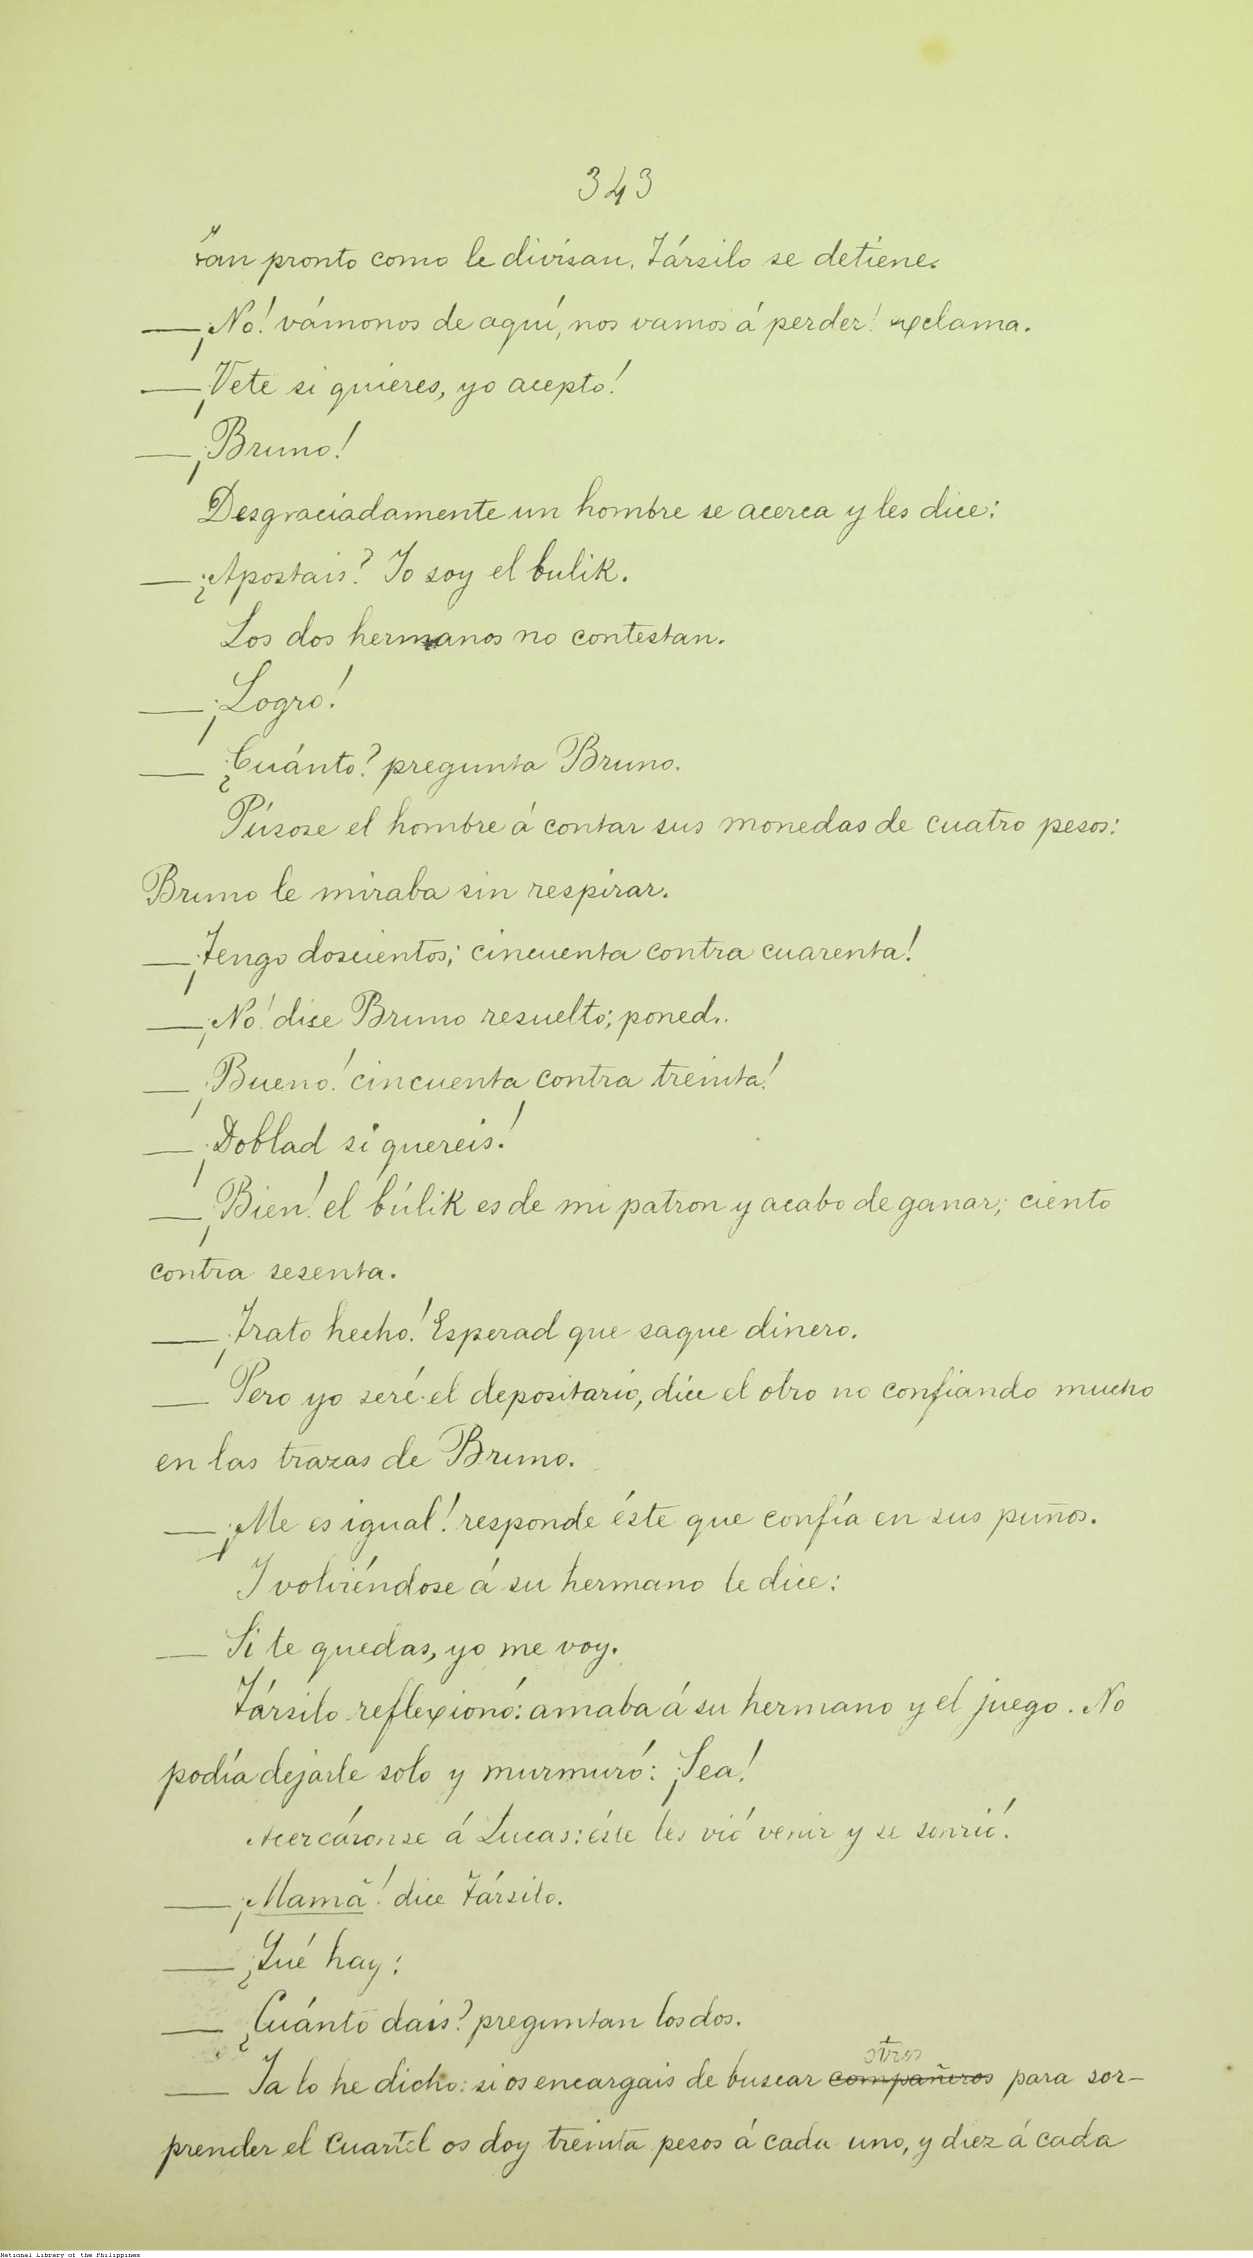 343
Tan pronto como le divisan, Társilo se detiene.
— ¡No! vámonos de aquí, nos vamos á perder! exclama.
— ¡Vete si quieres, yo acepto!
— ¡Bruno!
Desgraciadamente un hombre se acerca y les dice:
— ¿Apostais? Yo soy el bulik.
Los dos hermanos no contestan.
— ¡Logro!
— ¿Cuánto? pregunta Bruno.
Púsose el hombre á contar sus monedas de cuatro pesos:
Bruno le miraba sin respirar.
— ¡Tengo doscientos; cincuenta contra cuarenta!
— ¡No! dice Bruno resuelto; poned..
— ¡Bueno! cincuenta contra treinta!
— ¡Doblad si quereis!
— ¡Bien! el búlik es de mi patron y acabo de ganar; ciento
contra sesenta.
— ¡Trato hecho! Esperad que saque dinero.
— Pero yo seré el depositario, dice el otro no confiando mucho
en las trazas de Bruno.
— ¡Me es igual! responde éste que confía en sus puños.
Y volviéndose á su hermano le dice:
— Si te quedas, yo me voy.
Társilo reflexionó: amaba á su hermano y el juego. No
podía dejarle solo y murmuró: ¡Sea!
Acercáronse á Lucas: éste les vió venir y se sonrió.
— ¡Mamâ! dice Társilo.
— ¿Qué hay?
— ¿Cuánto dais? preguntan los dos.
otros
— Ya lo he dicho: si os encargais de buscar compañeros para sor-
prender el Cuartel os doy treinta pesos á cada uno, y diez á cada
National Library of the Philippines